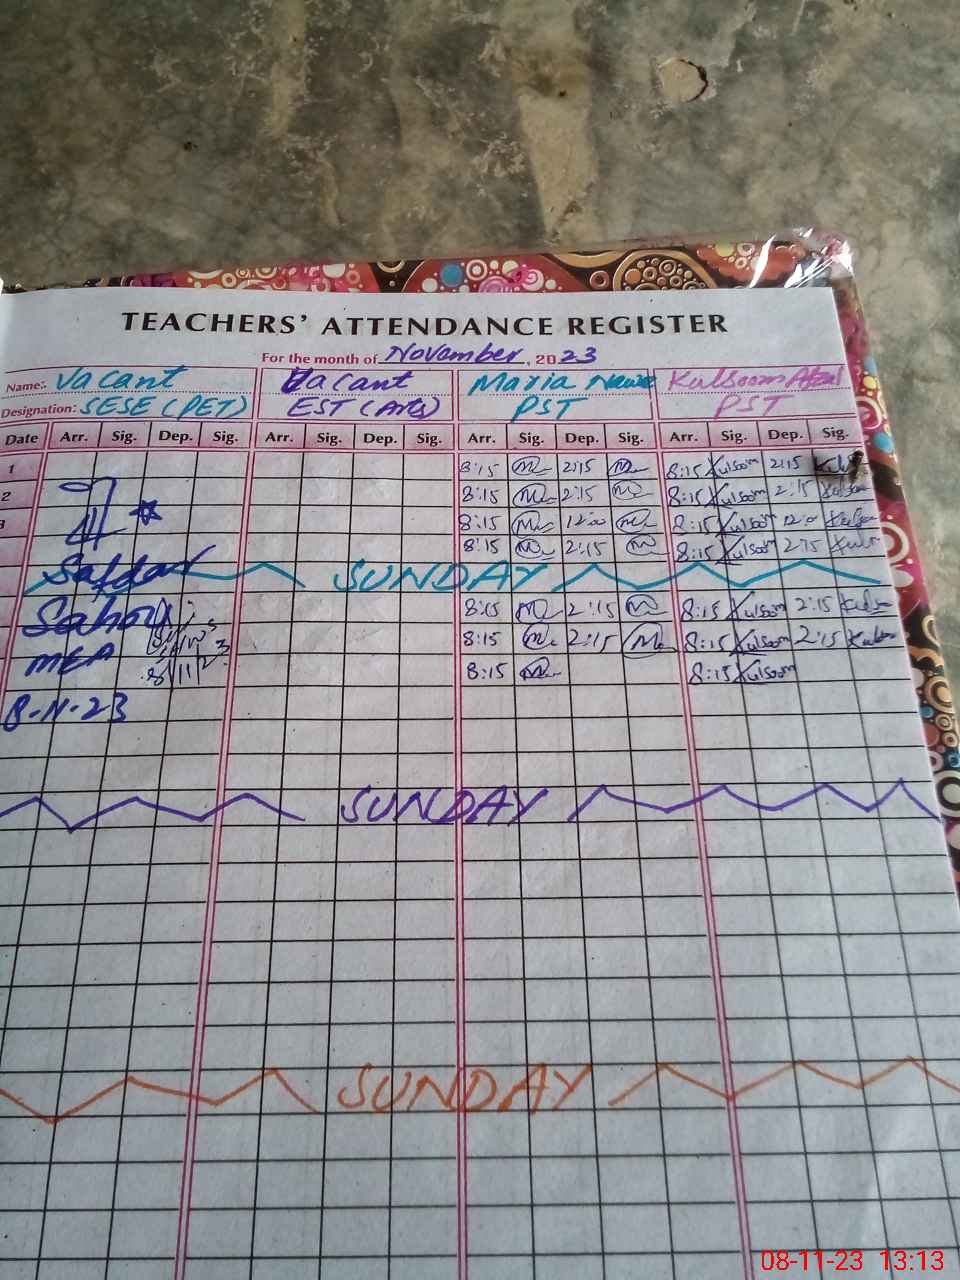 TEACHERS' ATTENDANCE REGISTER
For the month of November, 2023
Name: Vacant Vacant Maria Kulsoom
Designation: SESE (PET) EST (Arts) PST PST
Date Arr. Sig. Dep. Sig. Arr. Sig. Dep. Sig. Arr. Sig. Dep. Sig. Arr. Sig. Dep. Sig.
1 8:15 2:15 8:15 Kulsoom 2:15
2 8:15 2:15 8:15 Kulsoom 2:15 Kulsoom
3 8:15 12:00 8:15 Kulsoom 12:00 Kulsoom
8:15 2:15 8:15 Kulsoom 2:15
Safdar SUNDAY
Sahoo 8:15 2:15 8:15 Kulsoom 2:15
MEA 8:15 2:15 8:15 Kulsoom 2:15
8/11/23 8:15 8:15 Kulsoom
8-11-23
SUNDAY
SUNDAY
08-11-23 13:13